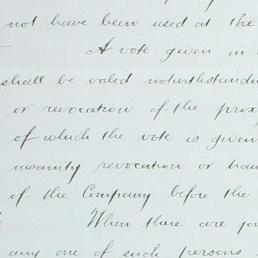 not have been used at the
A vote given in
shall be valed notwithstandin
or revocation of the prox
of which the vote is given
insanity revocation or tran
of the Company before the
When there are joi
any one of such persons